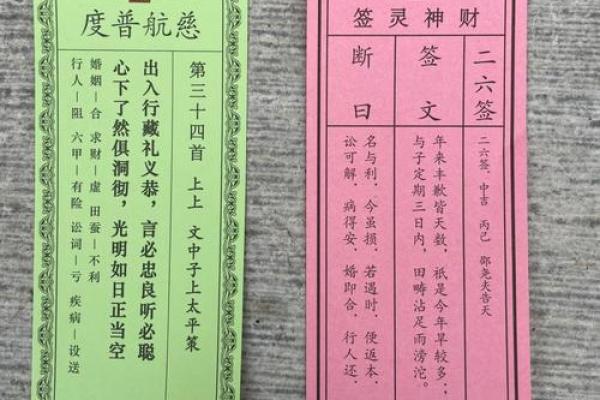 慈航普度
第三十四首 上上 文中子上太平策
出入行藏礼义恭，言必忠良听必聪
心下了然俱洞彻，光明如日正当空
婚姻—合 求财—虚 田蚕—不利
行人—阻 六甲—有险 讼词—亏 疾病—设送
财神灵签
二六签
二六签、中吉 丙己 邵尧夫告天
签文
年来丰歉皆天数，祇是今年旱较多；
与子定期三日内，田畴沾足雨滂沱。
断曰
名与利，今虽损，若遇时，便返本，
讼可解，病得安，婚即合，行人还。